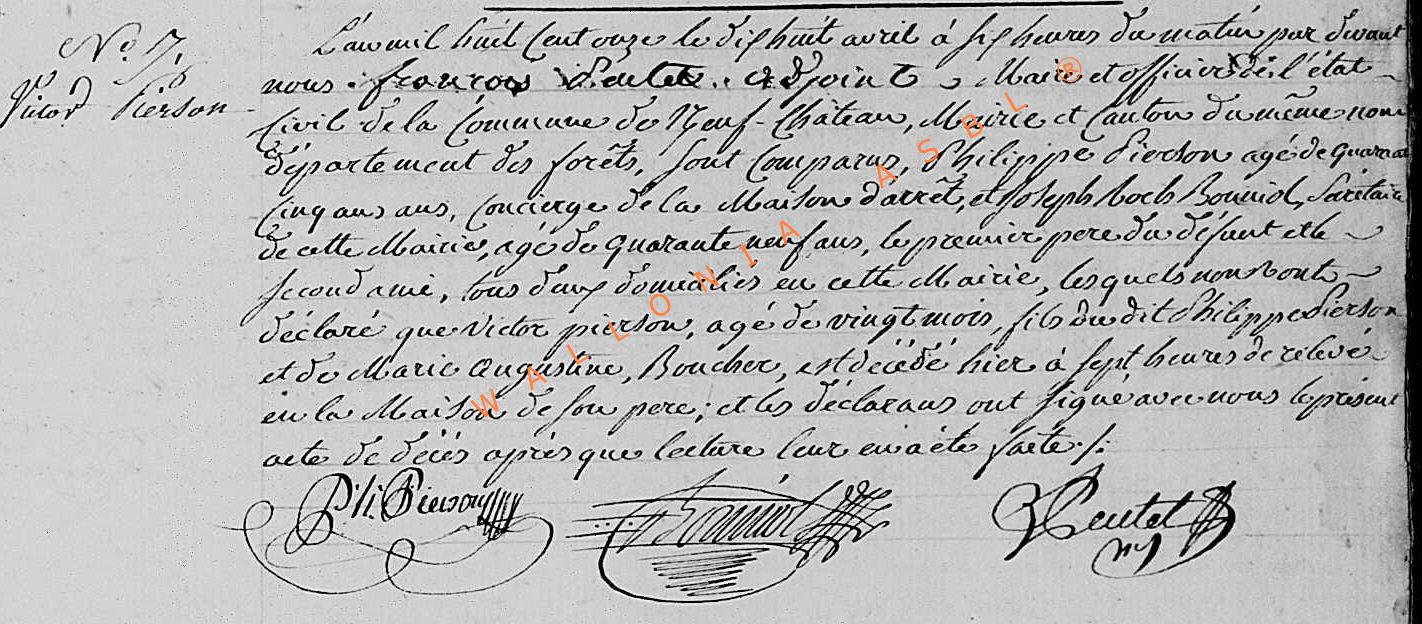 N.° 7.
Victor Pierson
L'an mil huit Cent onze le dix huit avril à six heures du matin par devant
nous françois adjoint Maire et officier de l'état
Civil de la Commune de Neuf-Château, Mairie et Canton du même nom
département des forêts, sont Comparus, Philippe Pierson agé de quarante
Cinq ans, Concierge de la Maison d'arrêt, et Joseph Roch Bouniol, Secrétaire
de cette Mairie, agé de quarante neuf ans, le premier pere du défunt et le
second ami, tous deux domiciliés en cette Mairie, lesquels nous ont
déclaré que Victor pierson, agé de vingt mois, fils du dit Philippe Pierson
et de Marie Augustine, Boucher, est décédé hier à sept heures de relevé
en la Maison de son pere; et les déclarans ont signé avec nous le présent
acte de décés après que lecture leur en a été faite ./.
Ph. Pierson Bouniol
WALLONIA ASBL ®